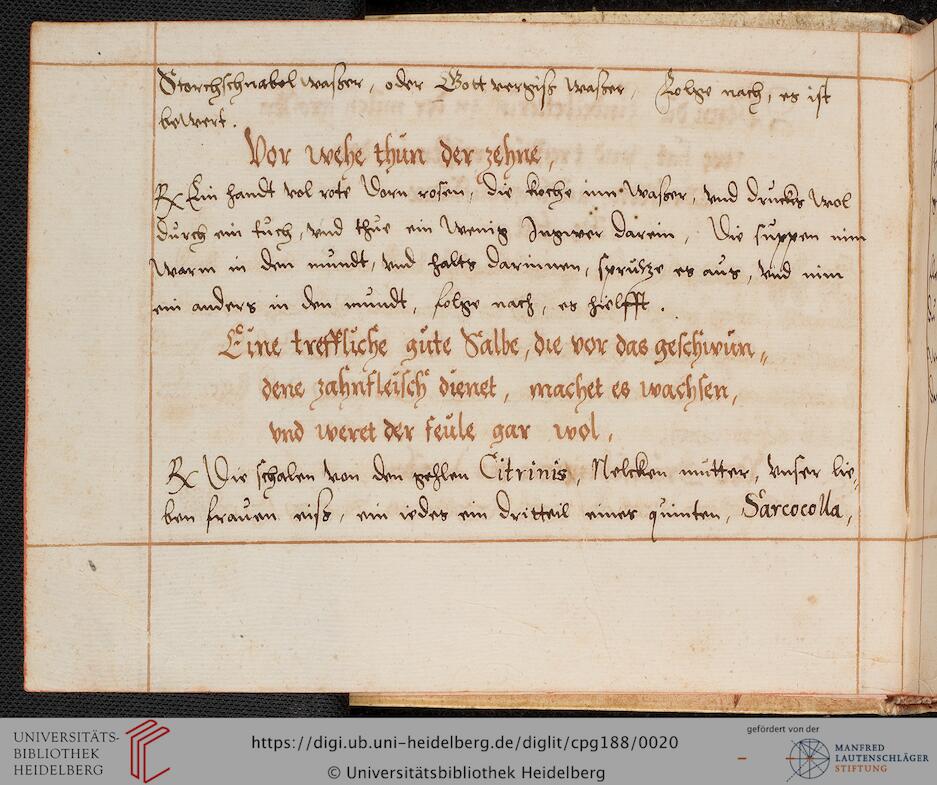 Storchschnabel waßer, oder Gott vergiß waßer, Folge nach, es ist
bewert.
Vor wehe thun der zehne,
Rx Ein handt vol rote Dorn rosen, die koche inn waßer, vnd drucks wol
durch ein tuch, vnd thue ein wenig Ingwer darein, Die suppen nim
warm in den mundt, vnd halts darinnen, sprutze es aus, vnd nim
ein anders in den mundt, folge nach, es hielfft.
Eine treffliche gute Salbe, die vor das geschwun„
dene zahnfleisch dienet, machet es wachsen,
vnd weret der feule gar wol,
Rx Die schalen von den gehlen Citrinis, Nelcken mutter, Vnser lie„
ben frauen eiß, ein iedes ein dritteil eines quinten, Sarcocolla,
UNIVERSITÄTS-
BIBLIOTHEK
HEIDELBERG
https://digi.ub.uni-heidelberg.de/diglit/cpg188/0020
© Universitätsbibliothek Heidelberg
gefördert von der
MANFRED
LAUTENSCHLÄGER
STIFTUNG